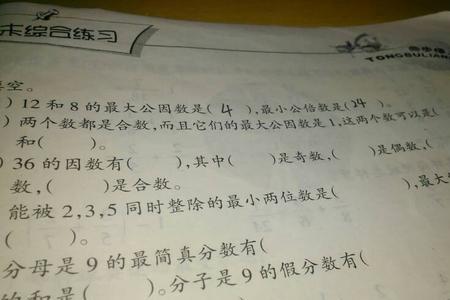 末综合练习
同步练
TONGBULIAN
空。
) 12 和 8 的最大公因数是( 4 ),最小公倍数是(24 )。
) 两个数都是合数,而且它们的最大公因数是 1,这两个数可以是(
和( )。
) 36 的因数有( ),其中( )是奇数,( )是偶数,(
数,( )是合数。
能被 2,3,5 同时整除的最小两位数是( ),最大
( )。
分母是 9 的最简真分数有(
的和是( )。分子是 9 的假分数有(